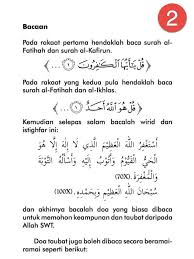 2
Bacaan
Pada rakaat pertama hendaklah baca surah al-
Fatihah dan surah al-Kafirun.
﴿ قُلْ يَٰٓأَيُّهَا ٱلْكَٰفِرُونَ ۝١ ... ﴾
Pada rakaat yang kedua pula hendaklah baca
surah al-Fatihah dan al-Ikhlas.
﴿ قُلْ هُوَ ٱللَّهُ أَحَدٌ ۝١ ... ﴾
Kemudian selepas salam bacalah wirid dan
istighfar ini:
أَسْتَغْفِرُ اللهَ الْعَظِيْمَ الَّذِي لَا إِلٰهَ إِلَّا هُوَ
الْحَيُّ الْقَيُّوْمُ وَأَتُوْبُ إِلَيْهِ وَأَسْأَلُهُ التَّوْبَةَ
(70X)
سُبْحَانَ اللهِ الْعَظِيْمِ وَبِحَمْدِهِ (100X)
dan akhirnya bacalah doa yang biasa dibaca
untuk memohon keampunan dan taubat daripada
Allah SWT.
Doa taubat juga boleh dibaca secara beramai-
ramai seperti berikut: